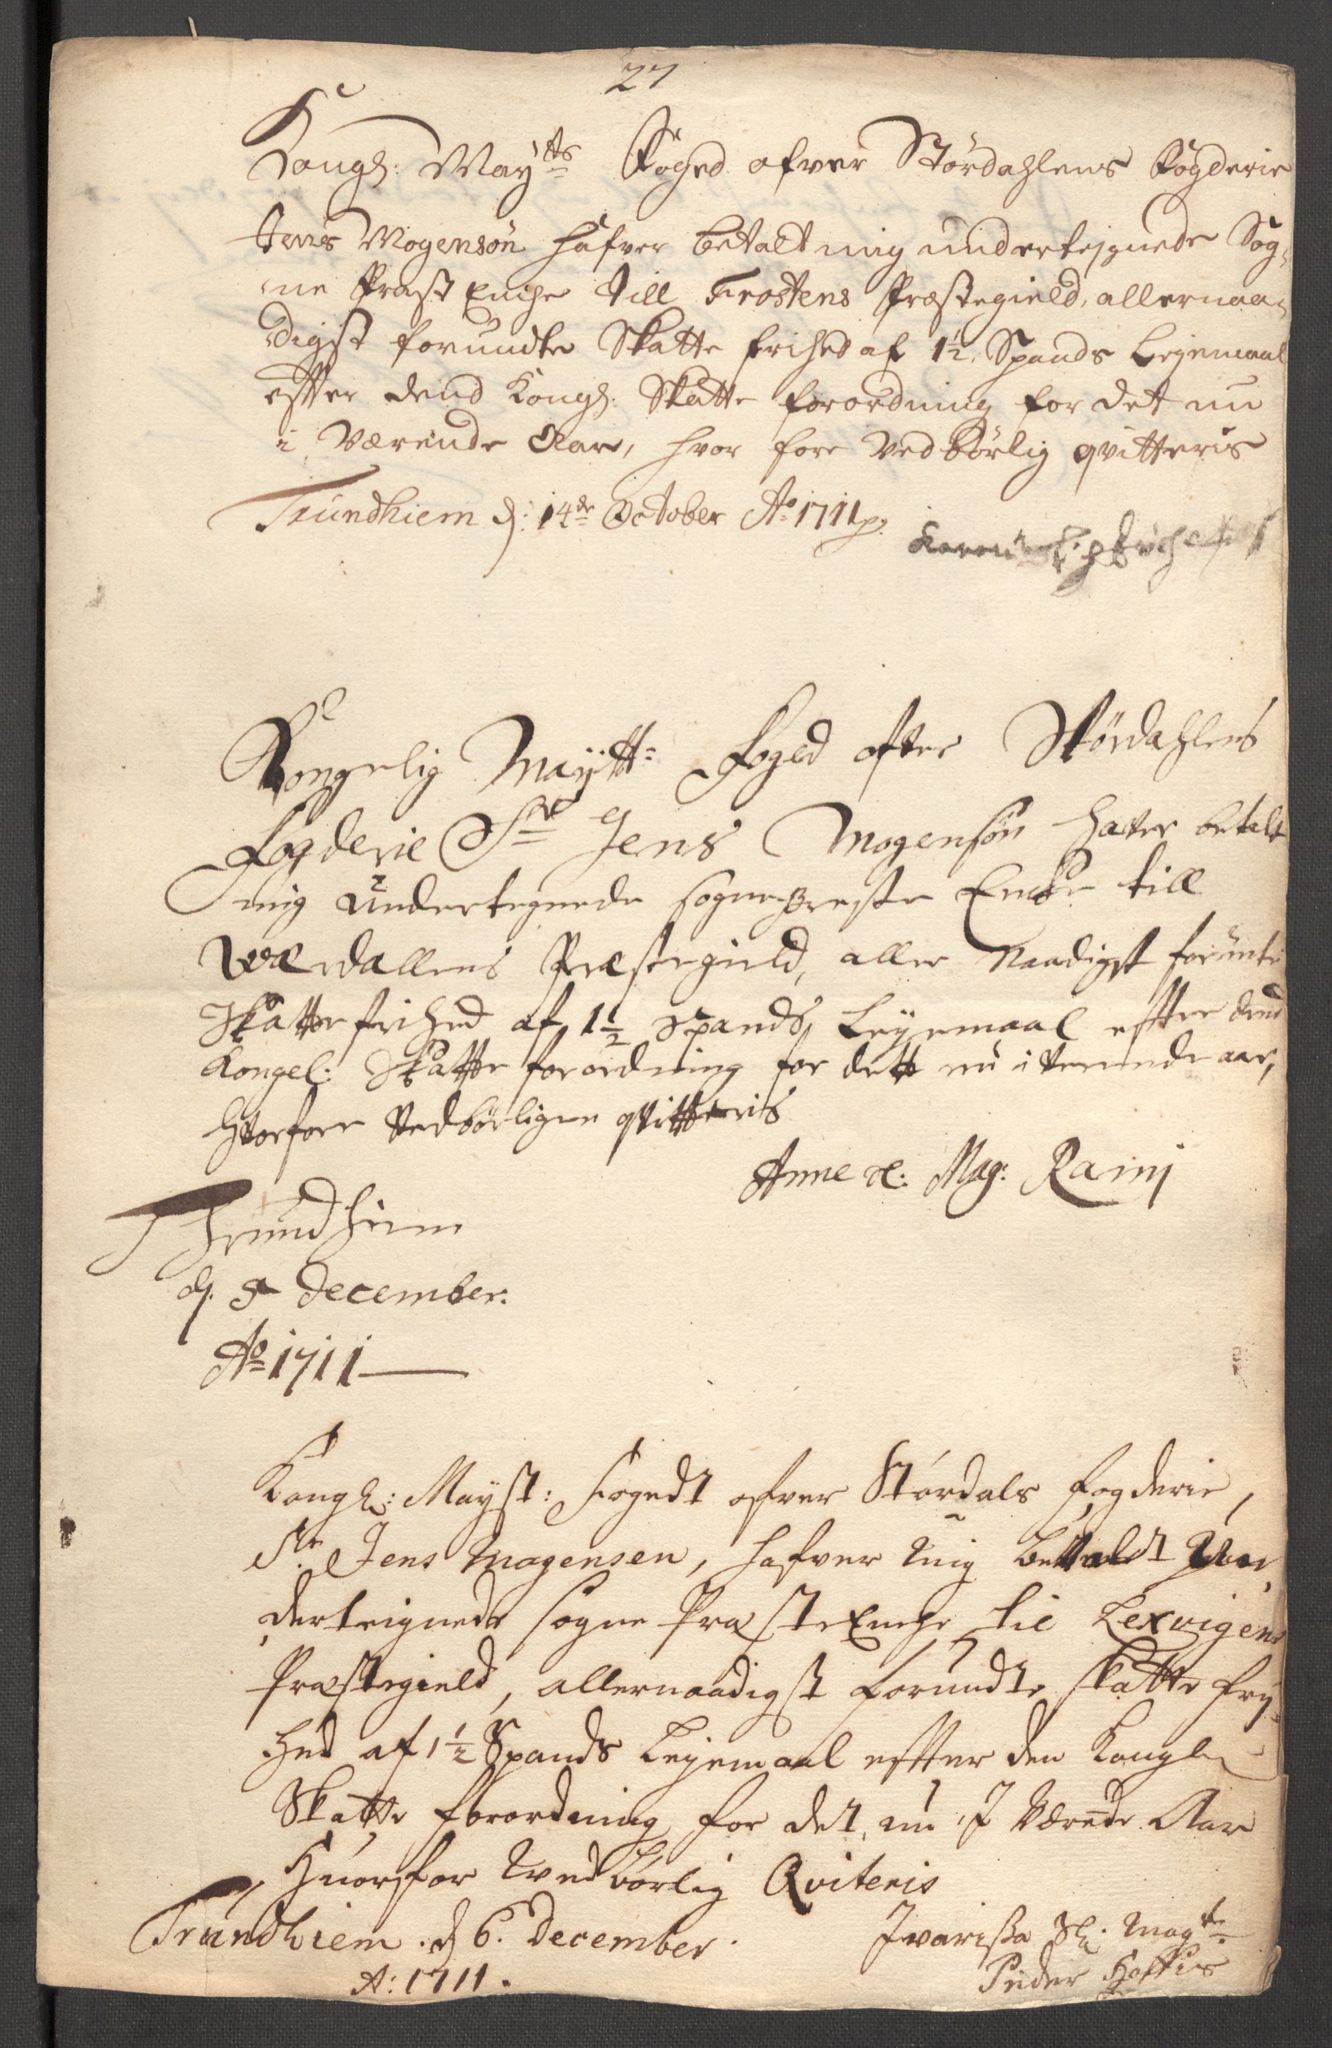 27
Kongl: May^tts Foged ofver Størdahlens Fogderie
Jens Mogensøn hafver betalt mig undertejgnede Sog-
ne Præst Enche till Frostens Præstegield, allernaa-
digst forundte Skatte frihed af 1½ Spands Lejemaal
effter dend Kongl: Skatte forordning for det nu
i Værende Aar, hvor fore Vedbørlig qvitteris
Trundhiem d: 14de October Ao 1711
Kongelig Maytt: Foged ofver Størdahlens
Fogderie Sr Jens Mogensøn haver betalt
mig undertegnede sogne Preste Encke till
Værdallens Præstegield, aller Naadigst forunte
Skatte frihed af 1½ Spands Leyemaal effter dend
Kongel: Skatte forordning for dett nu iverende aar,
hvorfore Vedbørligen qvitteris
Anne Mag: Rami
Thrundhiem
d. 5 December:
Ao 1711
Kongl: Mayst: Fogedt ofver Størdals Fogderie,
Sr. Jens Mogensen, hafver mig Betalt Un-
derteignede sogne Præste Enche til Lexvigens
Præstegield, allernaadigst forundte skatte fry-
hed af 1½ Spands Leyemaal effter den Kongle
Skatte forordning for det nu I Værende Aar
Huorfor Wedbørlig Qviteris
Trundhiem d 6. December.
A: 1711.
Ivarissa Sl. Magtr
Peder Hoffues